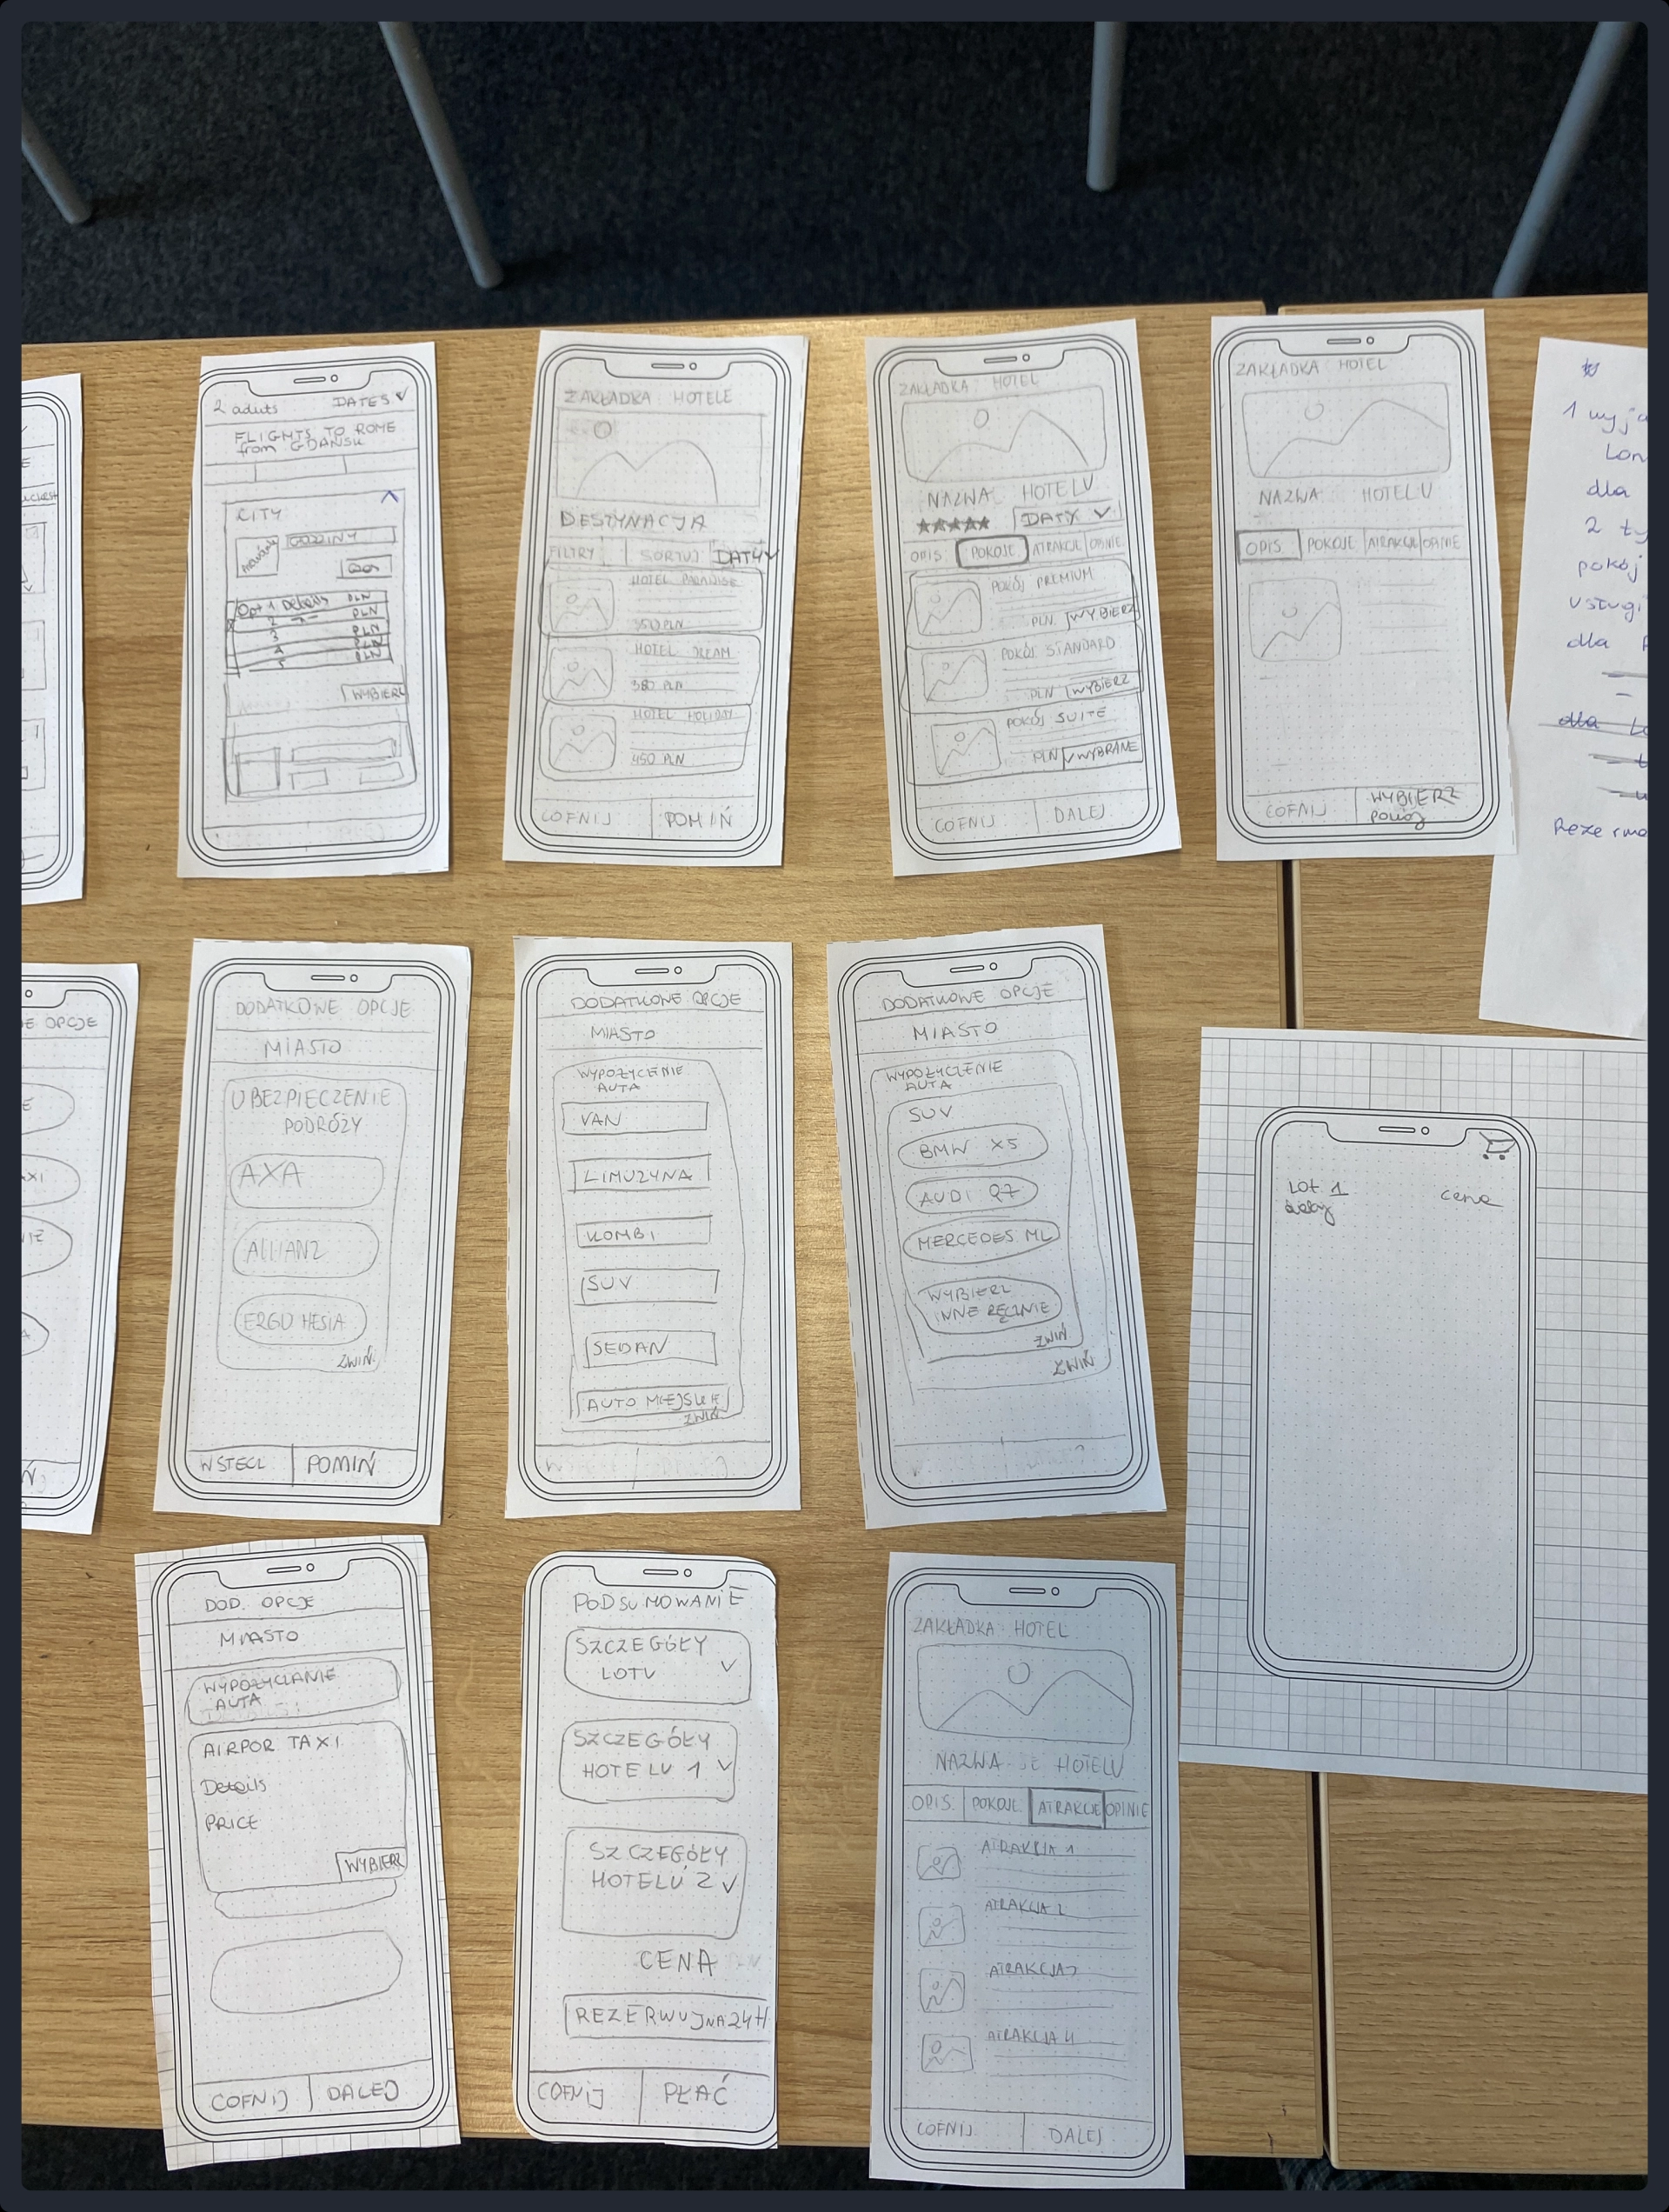 2 aduts
DATES
FLIGHTS TO ROME
from GDAŃSK
CITY
GODZINY
Opt 1 Details PLN
2 PLN
3 PLN
4 PLN
5 PLN
WYBIERZ
ZAKŁADKA HOTELE
DESTYNACJA
FILTRY SORTUJ DATY
HOTEL PARADISE
350 PLN
HOTEL DREAM
380 PLN
HOTEL HOLIDAY
450 PLN
COFNIJ POMIŃ
ZAKŁADKA: HOTEL
NAZWA HOTELU
★★★★★ DATY
OPIS POKOJE ATRAKCJE OPINIE
POKÓJ PREMIUM
PLN WYBIERZ
POKÓJ STANDARD
PLN WYBIERZ
POKÓJ SUITE
PLN WYBRANE
COFNIJ DALEJ
ZAKŁADKA HOTEL
NAZWA HOTELU
OPIS POKOJE ATRAKCJE OPINIE
COFNIJ WYBIERZ
POKÓJ
1 wyja
Lon
dla
2 ty
pokój
usługi
dla
dla Lo
Rezerwa
E OPCJE
E
XI
IE
A
DODATKOWE OPCJE
MIASTO
UBEZPIECZENIE
PODRÓŻY
AXA
ALLIANZ
ERGO HESIA
ZWIŃ
WSTECZ POMIŃ
DODATKOWE OPCJE
MIASTO
WYPOŻYCENIE
AUTA
VAN
LIMUZYNA
KOMBI
SUV
SEDAN
AUTO MIEJSKIE
ZWIŃ
DODATKOWE OPCJE
MIASTO
WYPOŻYCZENIE
AUTA
SUV
BMW X5
AUDI Q7
MERCEDES ML
WYBIERZ
INNE RĘCZNIE
ZWIŃ
ZWIŃ
Lot 1
cena
DOD. OPCJE
MIASTO
WYPOŻYCZANIE
AUTA
AIRPOR TAXI
Details
PRICE
WYBIERZ
COFNIJ DALEJ
PODSUMOWANIE
SZCZEGÓŁY
LOTU
SZCZEGÓŁY
HOTELU 1
SZCZEGÓŁY
HOTELU 2
CENA
REZERWUJ NA 24H
COFNIJ PŁAĆ
ZAKŁADKA: HOTEL
NAZWA HOTELU
OPIS POKOJE ATRAKCJE OPINIE
ATRAKCJA 1
ATRAKCJA 2
ATRAKCJA
ATRAKCJA 4
COFNIJ DALEJ